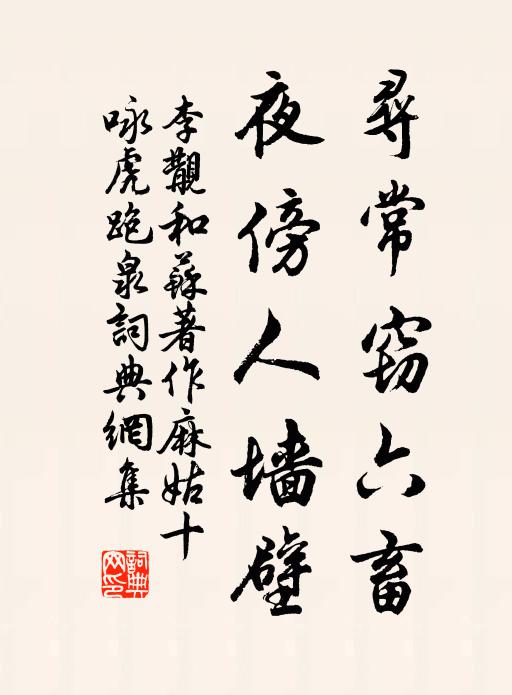 尋常窃六畜
夜傍人墻壁
李覯和蘇著作麻姑十
咏虎跑泉詞典網集